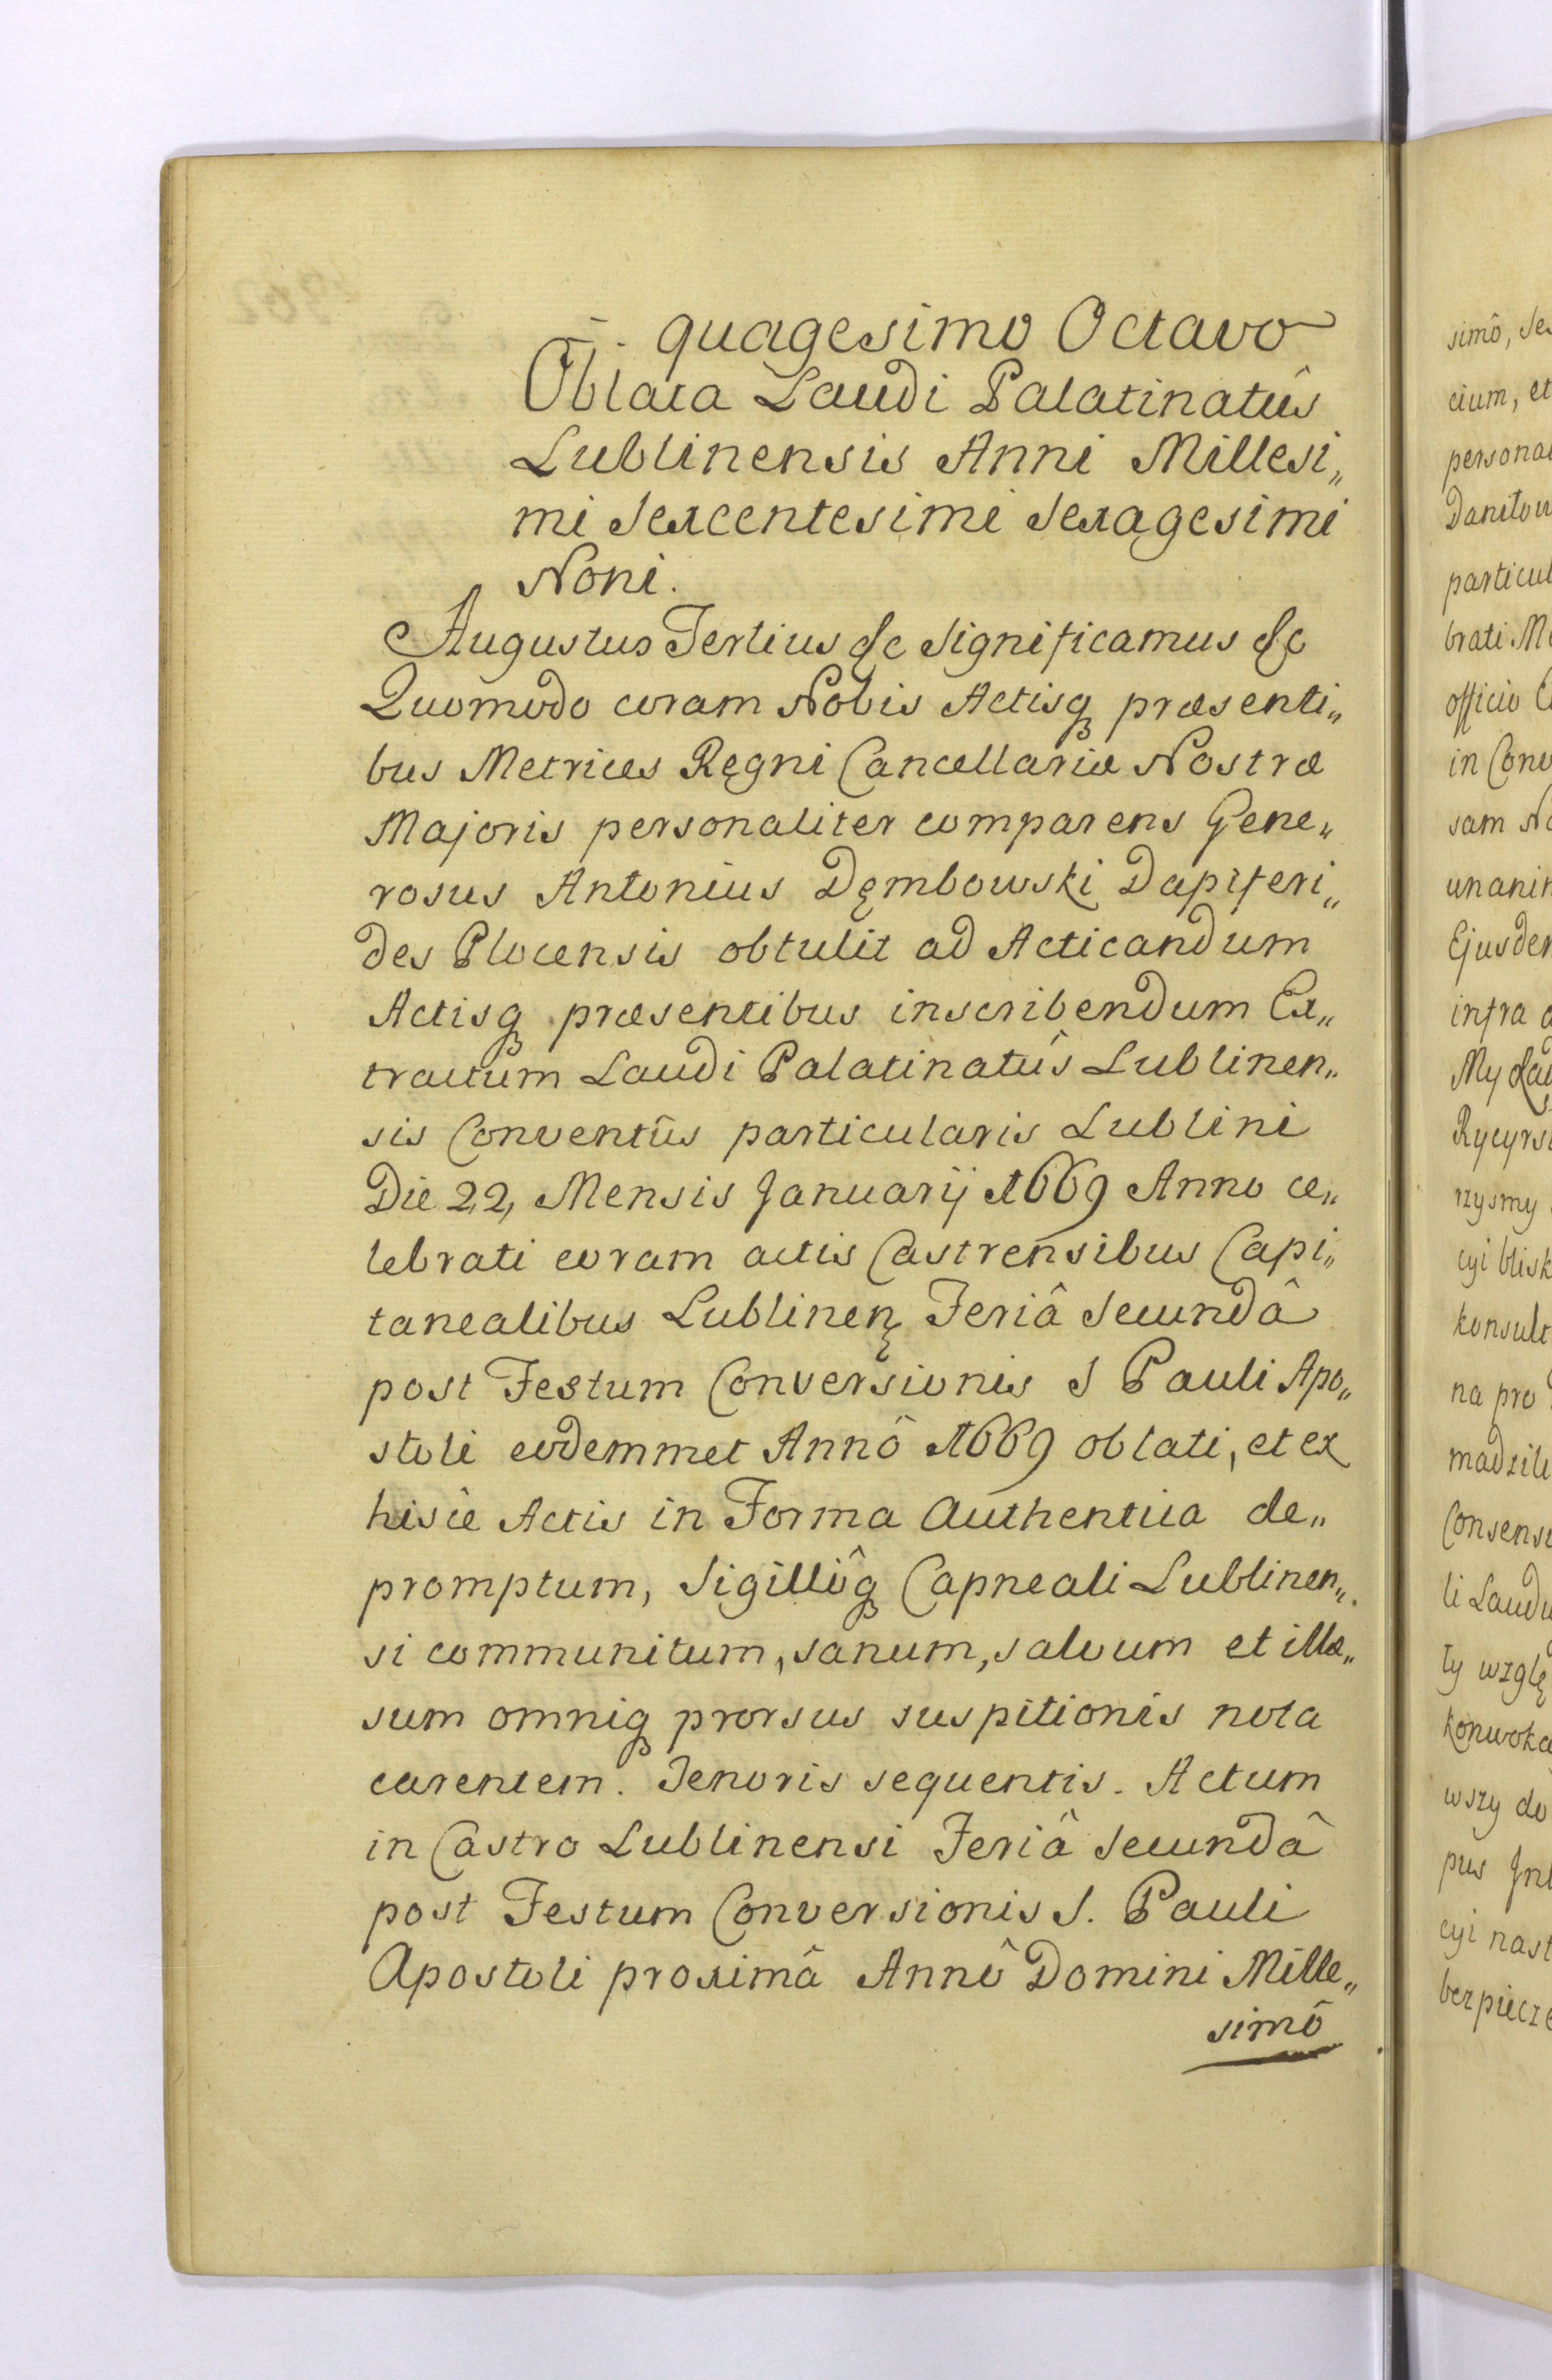 quagesimo Octavo
Oblata Laudi Palatinatûs
Lublinensis Anni Millesi„
mi Sexcentesimi Sexagesimi
Noni.
Augustus Tertius &c Significamus &c
Quomodo coram Nobis Actisq præsenti„
bus Metrices Regni Cancellariæ Nostræ
Majoris personaliter comparens Gene„
rosus Antonius Dęmbowski Dapiferi„
des Plocensis obtulit ad Acticandum
Actisq præsentibus inscribendum Ex„
tractum Laudi Palatinatûs Lublinen„
sis Conventûs particularis Lublini
Die 22, Mensis Januarij 1669 Anno ce„
lebrati coram actis Castrensibus Capi„
tanealibus Lublinen Feriâ Secundâ
post Festum Conversionis S Pauli Apo„
stoli eodemmet Annô 1669 oblati, et ex
hisce Actis in Forma Authentica de„
promptum, Sigillôq Capneali Lublinen„
si communitum, sanum, salvum et illæ„
sum omniq prorsus suspitionis nota
carentem. Tenoris sequentis. Actum
in Castro Lublinensi Feriâ Secundâ
post Festum Conversionis S. Pauli
Apostoli proximâ Annô Domini Mille„
simô
simô, Se
cium, et
persona
Daniłow
particul
brati M
officio C
in Conv
sam No
unanim
Ejusdem
infra
My
Rycyrs
rzysmy
cyi blisk
konsult
na pro
madzili
Consensu
li Laudu
ty wzglę
konwoka
wszy do
pus Int
cyi nast
bezpiecze